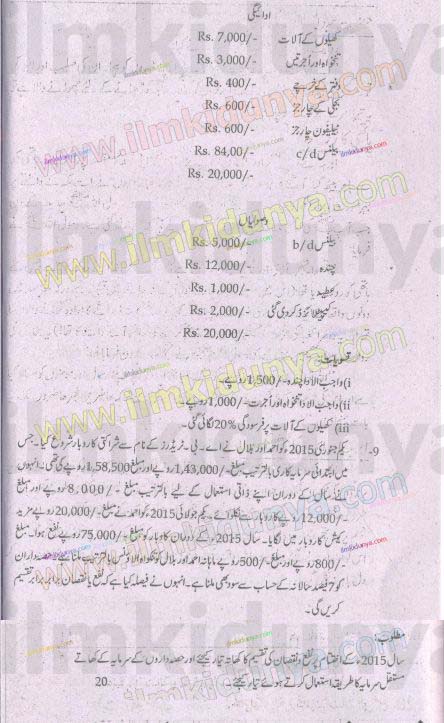 ادائیگی
کھیلوں کے آلات Rs. 7,000/-
تنخواہ اور اُجرتیں Rs. 3,000/-
دفتر کے خرچے Rs. 400/-
بجلی کے چارجز Rs. 600/-
ٹیلیفون چارجز Rs. 600/-
بیلنس c/d Rs. 84,00/-
Rs. 20,000/-
وصولیاں
بیلنس b/d Rs. 5,000/-
چندہ Rs. 12,000/-
عطیہ Rs. 1,000/-
کیپیٹلائزڈ کر دی گئی Rs. 2,000/-
Rs. 20,000/-
تسویات:
(i) واجب الادا چندہ -/1,500 روپے۔
(ii) واجب الادا تنخواہ اور اُجرت -/1,000 روپے۔
(iii) کھیلوں کے آلات پر فرسودگی %20 لگائی گئی۔
9- یکم جنوری 2015ء کو احمد اور بلال نے اے۔ بی۔ ٹریڈرز کے نام سے شراکتی کاروبار شروع کیا۔ جس
میں ابتدائی سرمایہ کاری بالترتیب مبلغ -/1,43,000 روپے اور مبلغ 1,58,500 روپے کی تھی۔ انہوں
نے سال کے دوران اپنے ذاتی استعمال کے لیے بالترتیب مبلغ -/8,000 روپے اور مبلغ
-/12,000 روپے کاروبار سے نکلوائے۔ یکم جولائی 2015ء کو احمد نے مبلغ -/20,000 روپے مزید
کیش کاروبار میں لگایا۔ سال 2015ء کے دوران کاروبار کو مبلغ -/75,000 روپے نفع ہوا۔ مبلغ
-/800 روپے اور مبلغ -/500 روپے ماہانہ احمد اور بلال کو تنخواہ الاؤنس بالترتیب ملتا ہے۔ حصہ داران
کو 7 فیصد سالانہ کے حساب سے سود بھی ملنا ہے۔ انہوں نے فیصلہ کیا ہے کہ نفع یا نقصان برابر برابر تقسیم
کریں گی۔
مطلوب:
سال 2015ء کے اختتام پر نفع و نقصان کی تقسیم کا کھاتہ تیار کیجئے اور حصہ داروں کے سرمایہ کے کھاتے
مستقل سرمایہ کا طریقہ استعمال کرتے ہوئے تیار کیجئے 20
www.ilmkidunya.com